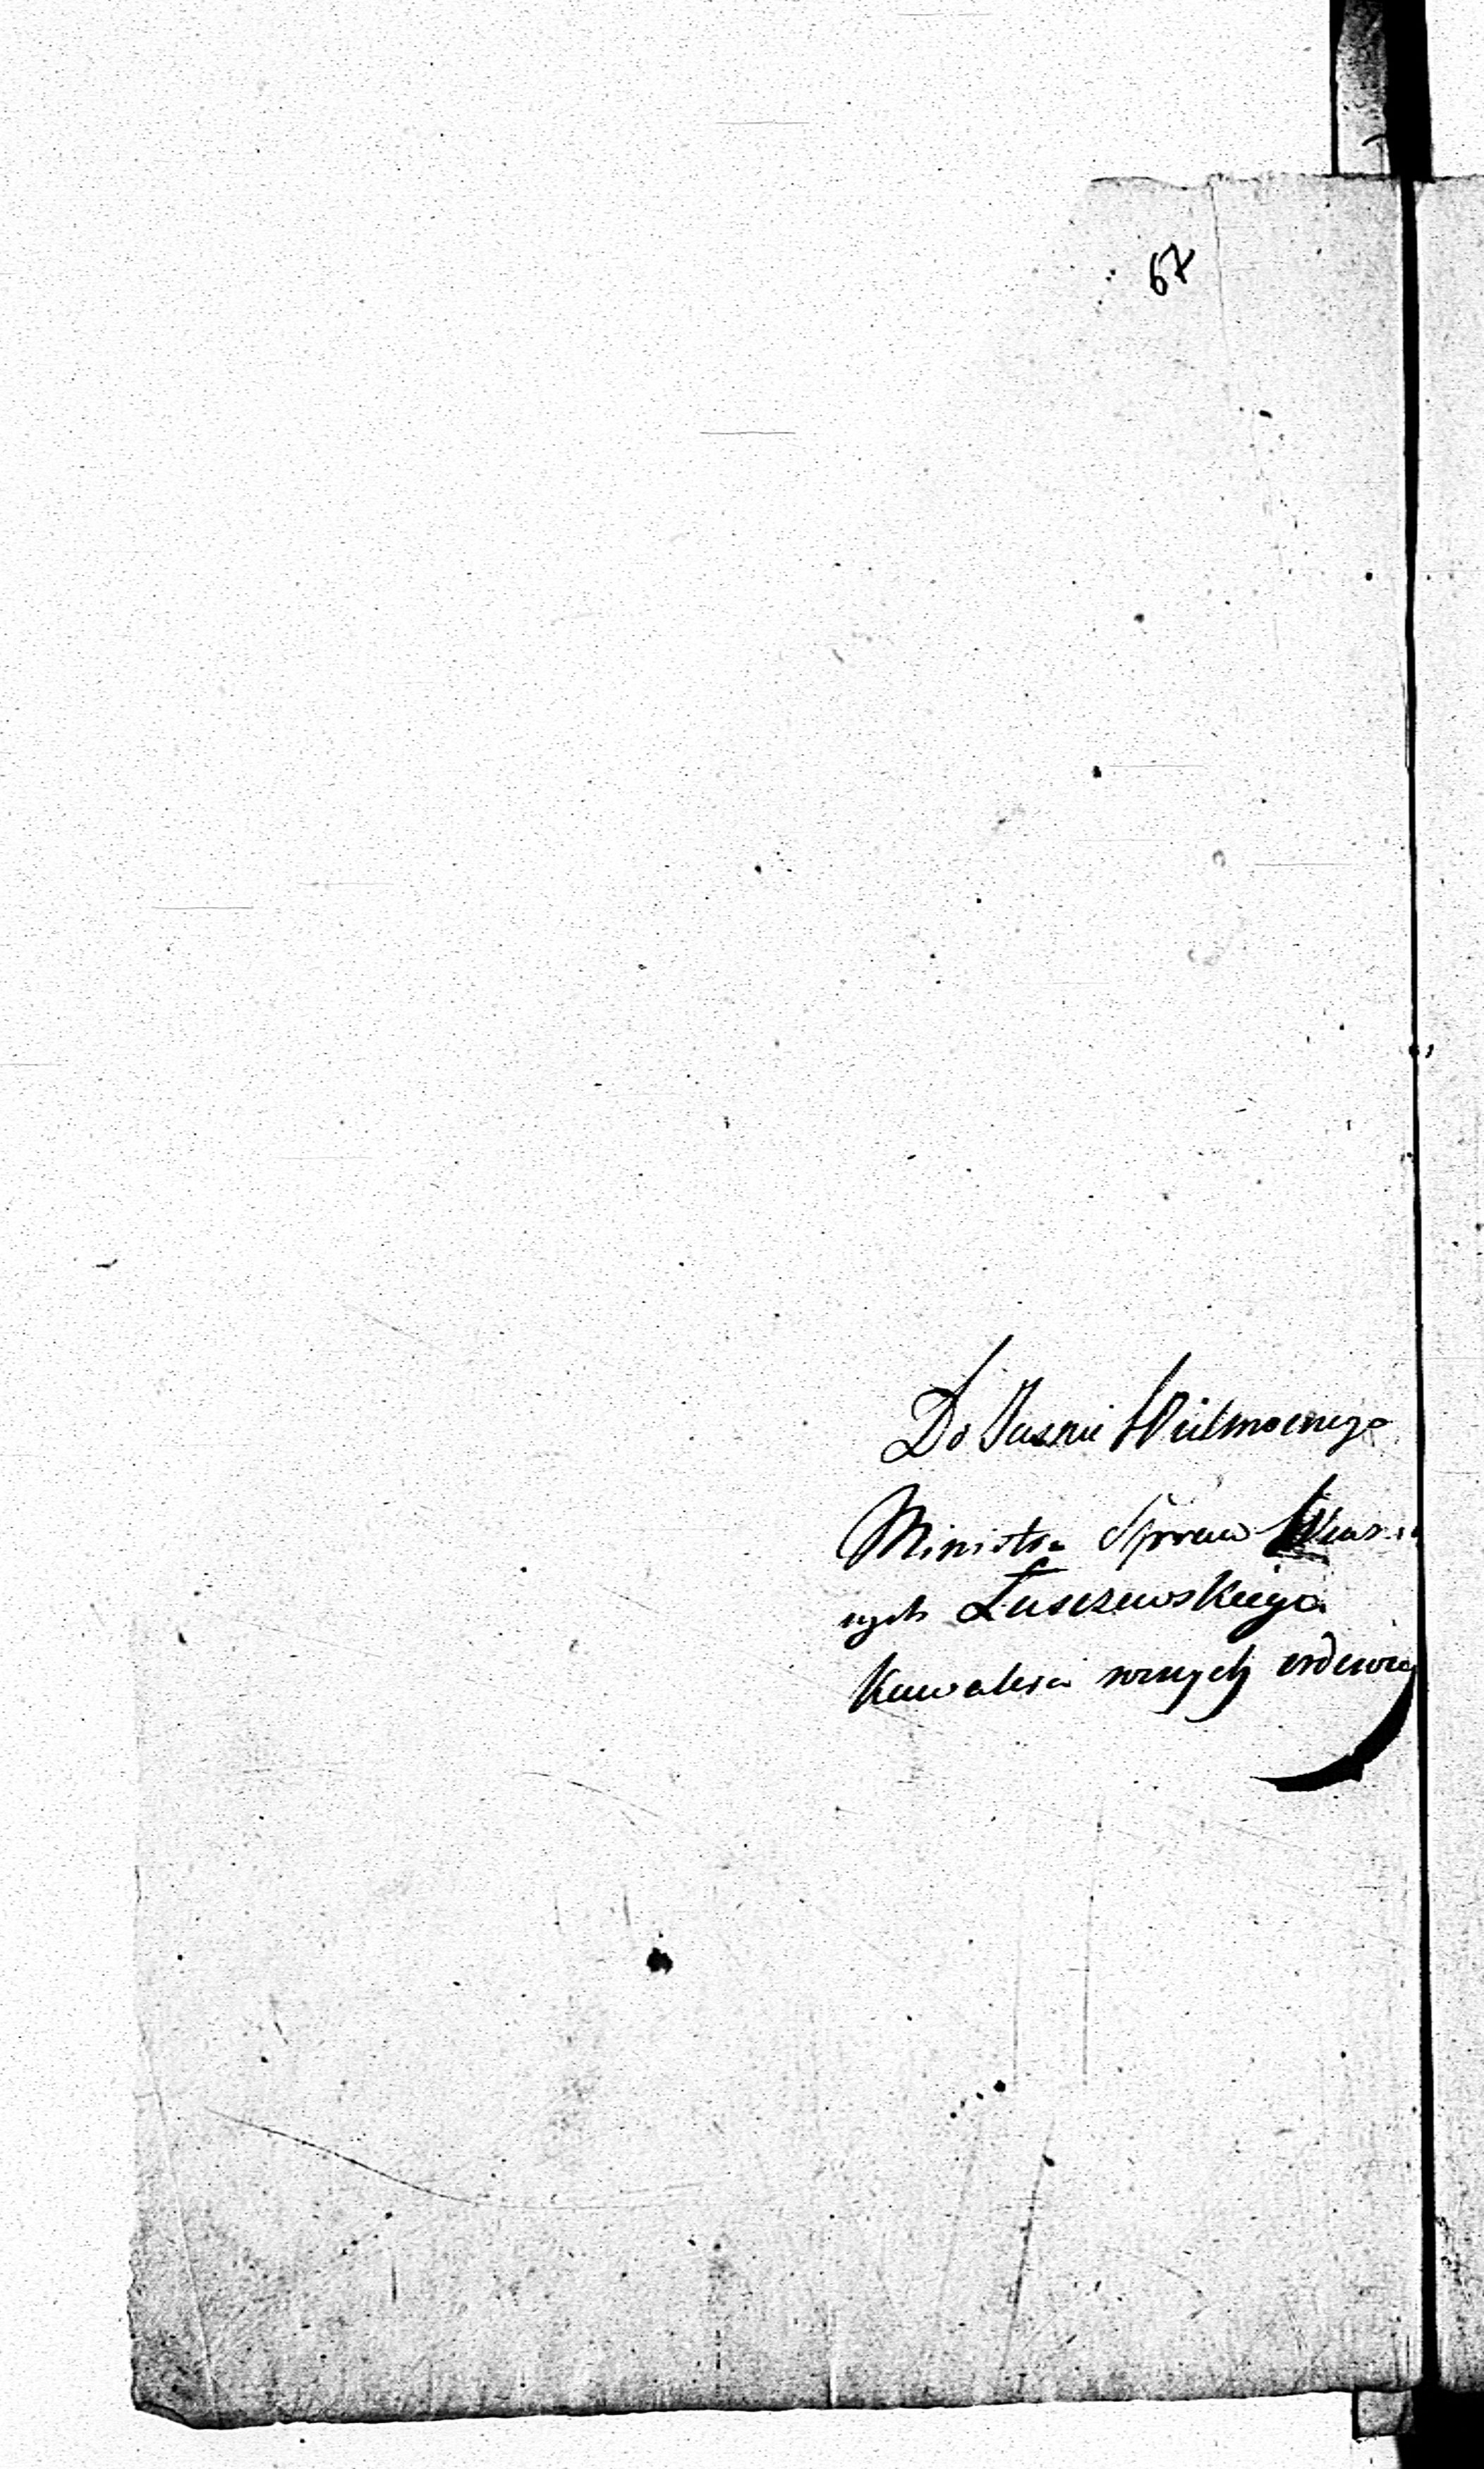 67
Do Jasnie Wielmocnego
Ministra Spraw Wewn
nych Łuszczewskiego
Kawalera roznych orderow